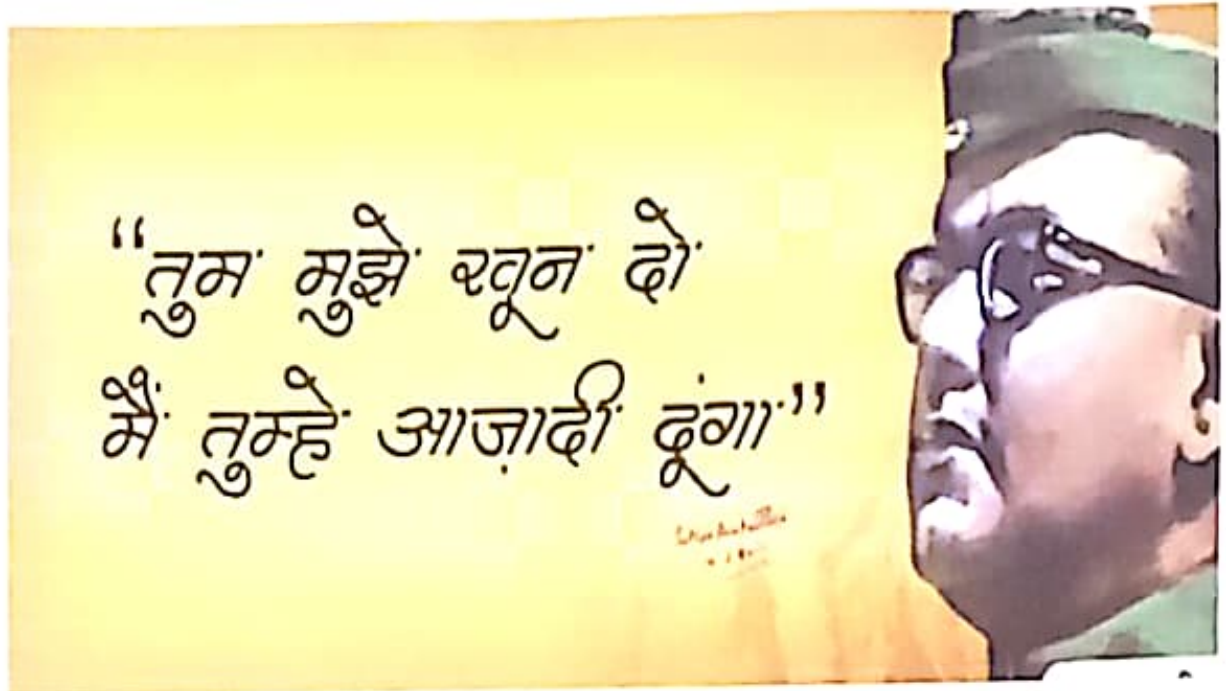 “तुम मुझे खून दो
मैं तुम्हे आज़ादी दूंगा”